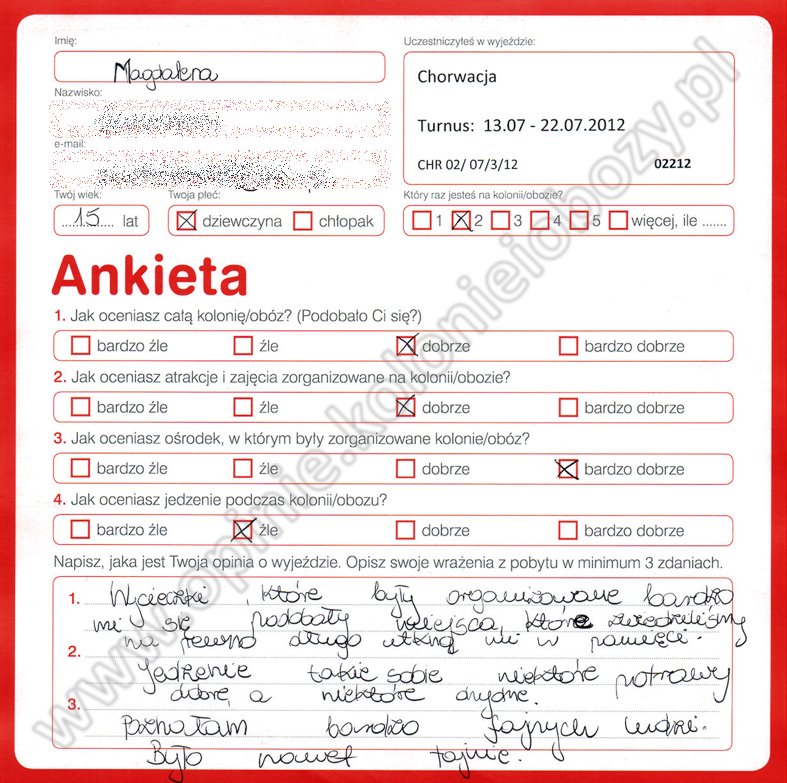 Imię:
Magdalena
Uczestniczyłeś w wyjeździe:
Chorwacja
Turnus: 13.07 - 22.07.2012
CHR 02/ 07/3/12 02212
Nazwisko:
e-mail:
Twój wiek:
15 lat
Twoja płeć:
dziewczyna chłopak
Który raz jesteś na kolonii/obozie?
1 2 3 4 5 więcej, ile .......
Ankieta
1. Jak oceniasz całą kolonię/obóz? (Podobało Ci się?)
bardzo źle źle dobrze bardzo dobrze
2. Jak oceniasz atrakcje i zajęcia zorganizowane na kolonii/obozie?
bardzo źle źle dobrze bardzo dobrze
3. Jak oceniasz ośrodek, w którym były zorganizowane kolonie/obóz?
bardzo źle źle dobrze bardzo dobrze
4. Jak oceniasz jedzenie podczas kolonii/obozu?
bardzo źle źle dobrze bardzo dobrze
Napisz, jaka jest Twoja opinia o wyjeździe. Opisz swoje wrażenia z pobytu w minimum 3 zdaniach.
1. Wycieczki, które były organizowane bardzo
mi się podobały miejsca, które zwiedziliśmy
na pewno długo utkną mi w pamięci.
2.
Jedzenie takie sobie niektóre potrawy
dobre, a niektóre ohydne.
3.
Poznałam bardzo fajnych ludzi.
Było nawet fajnie.
www.opinie.kolonieiobozy.pl